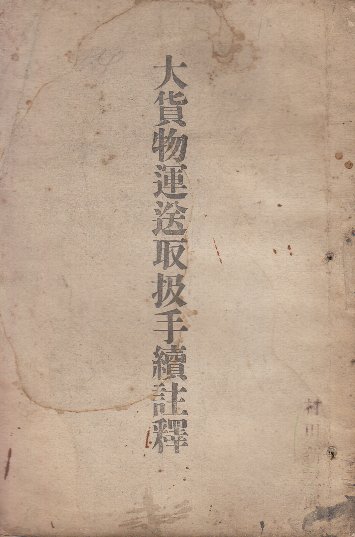 大貨物運送取扱手續註釋
村